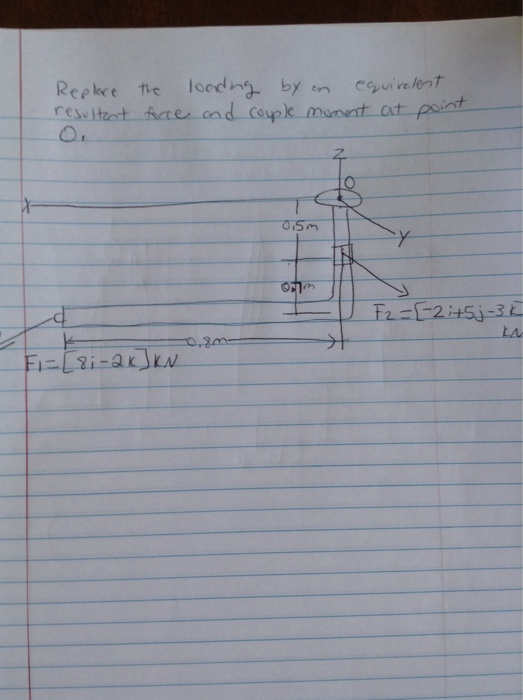 Replace the loading by an equivalent
resultant force and couple moment at point
O.
Z
O
X
0.5m
Y
0.7m
F2=[-2i+5j-3k]
kN
0.8m
F1=[8i-2k]kN